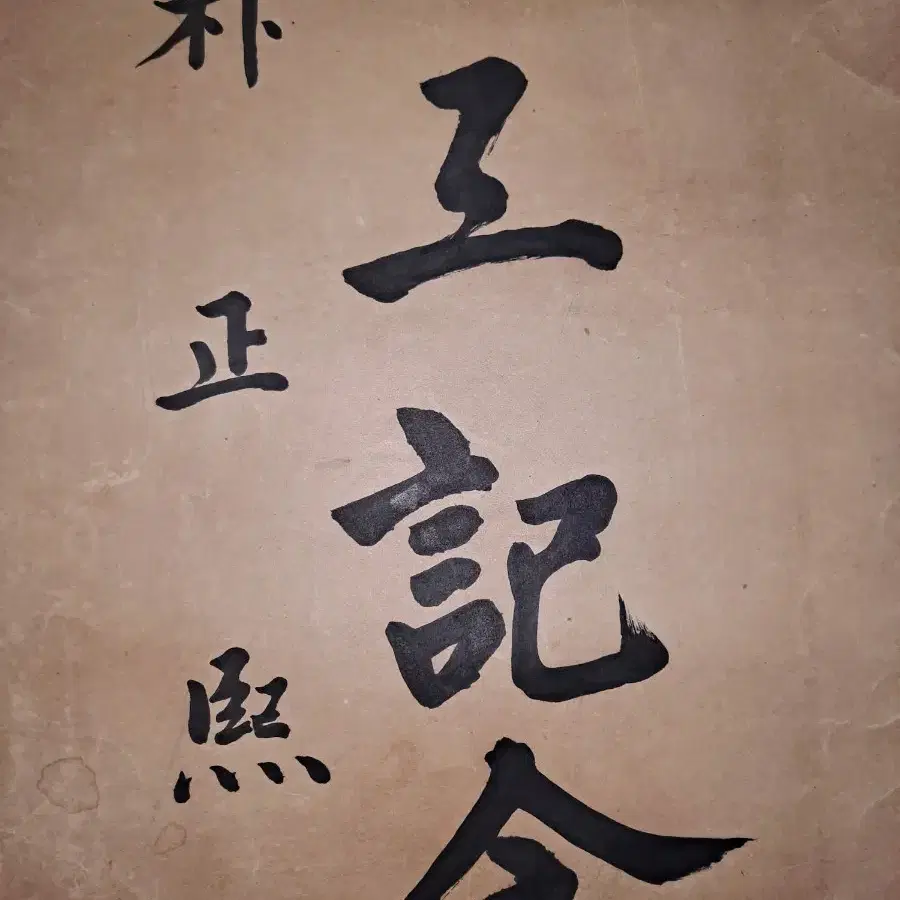 工記念
朴正熙